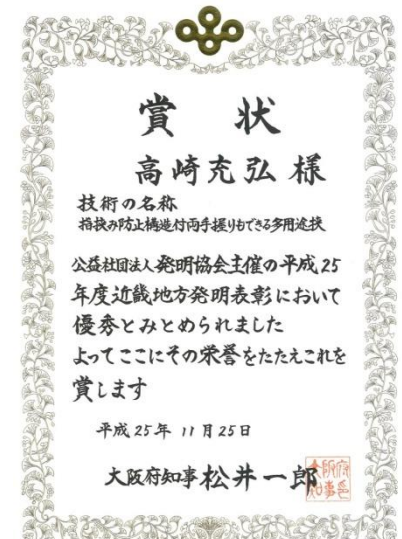 賞状
高崎充弘 様
技術の名称
指挟み防止構造付両手握りもできる多用途鋏
公益社団法人 発明協会主催の平成25
年度近畿地方発明表彰において
優秀とみとめられました
よってここにその栄誉をたたえこれを
賞します
平成25年 11月25日
大阪府知事 松井一郎
大阪府
知事印